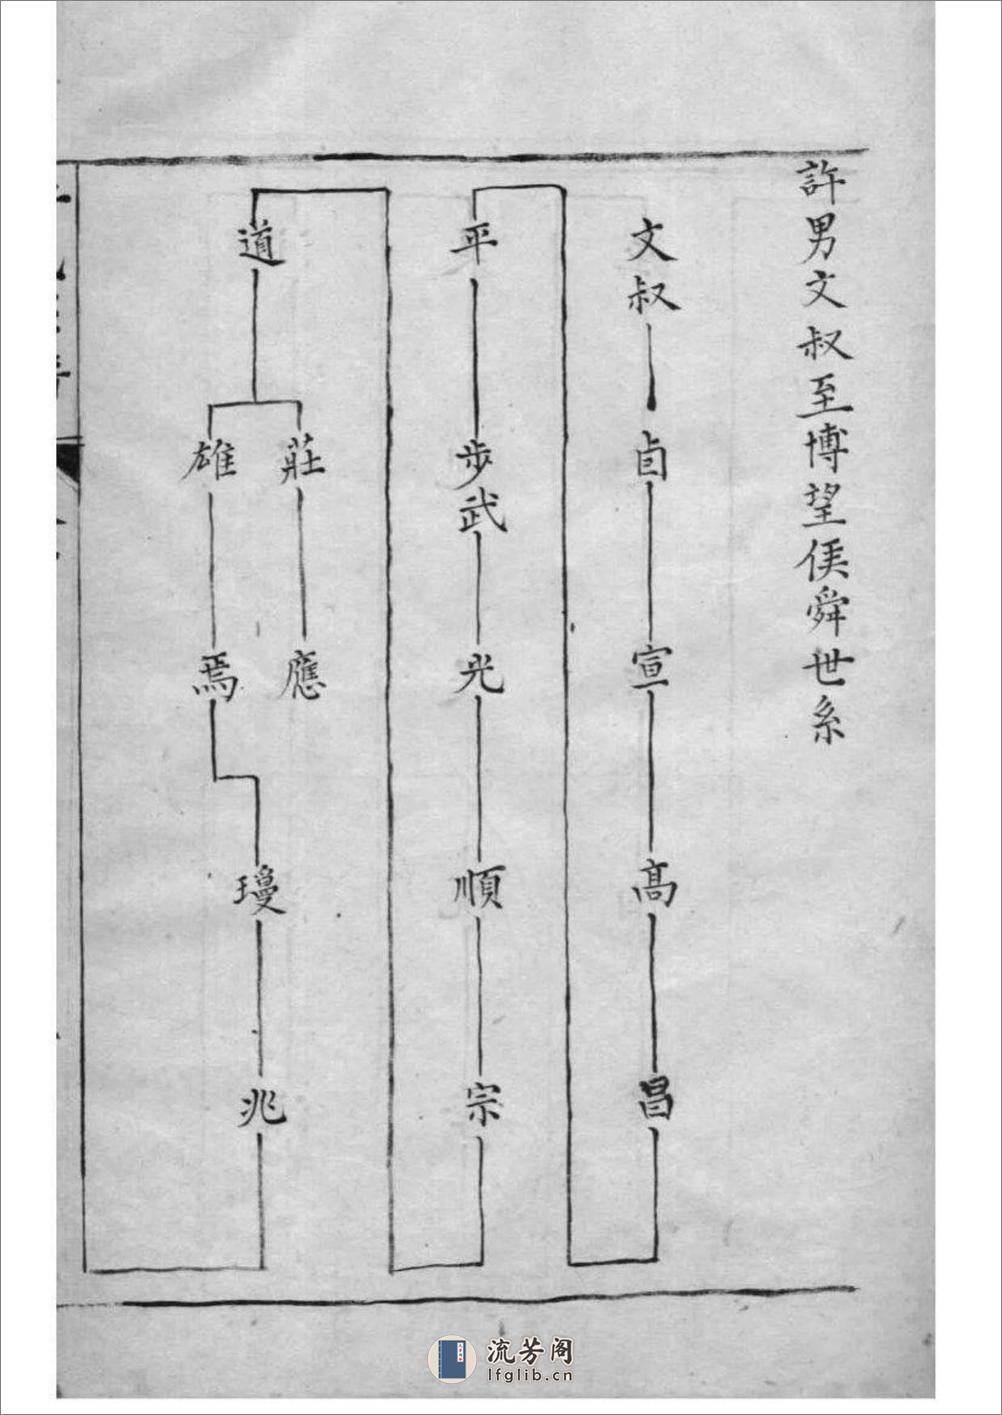 許男文叔至博望侯舜世系
文叔
卣
宣
高
昌
平
步武
光
順
宗
道
莊
應
雄
焉
瓊
兆
流芳阁
lfglib.cn